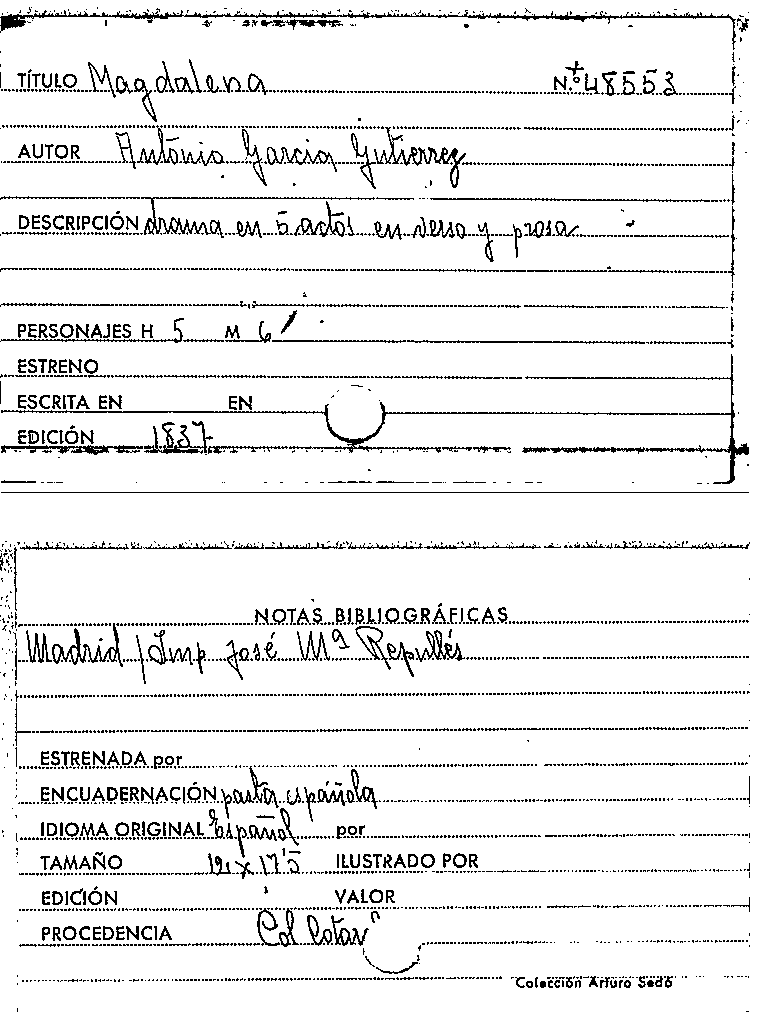 TÍTULO Magdalena N.º 48553
AUTOR Antonio Garcia Gutierrez
DESCRIPCIÓN drama en 5 actos en verso y prosa
PERSONAJES H 5 M 6
ESTRENO
ESCRITA EN EN
EDICIÓN 1837
NOTAS BIBLIOGRÁFICAS
Madrid / Imp José Mª Repullés
ESTRENADA por
ENCUADERNACIÓN pasta española
IDIOMA ORIGINAL Español por
TAMAÑO x 17'5 ILUSTRADO POR
EDICIÓN VALOR
PROCEDENCIA Col
Colección Arturo Sedó